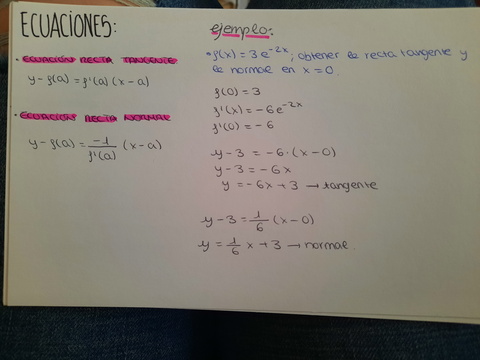 ECUACIONES:
• ECUACIÓN RECTA TANGENTE
y-f(a) = f'(a) (x-a)
• ECUACIÓN RECTA NORMAL
y-f(a) = -1/f'(a) (x-a)
ejemplo:
• f(x) = 3e^-2x; obtener la recta tangente y
la normal en x=0.
f(0) = 3
f'(x) = -6e^-2x
f'(0) = -6
y-3 = -6·(x-0)
y-3 = -6x
y = -6x+3 → tangente
y-3 = 1/6 (x-0)
y = 1/6 x+3 → normal